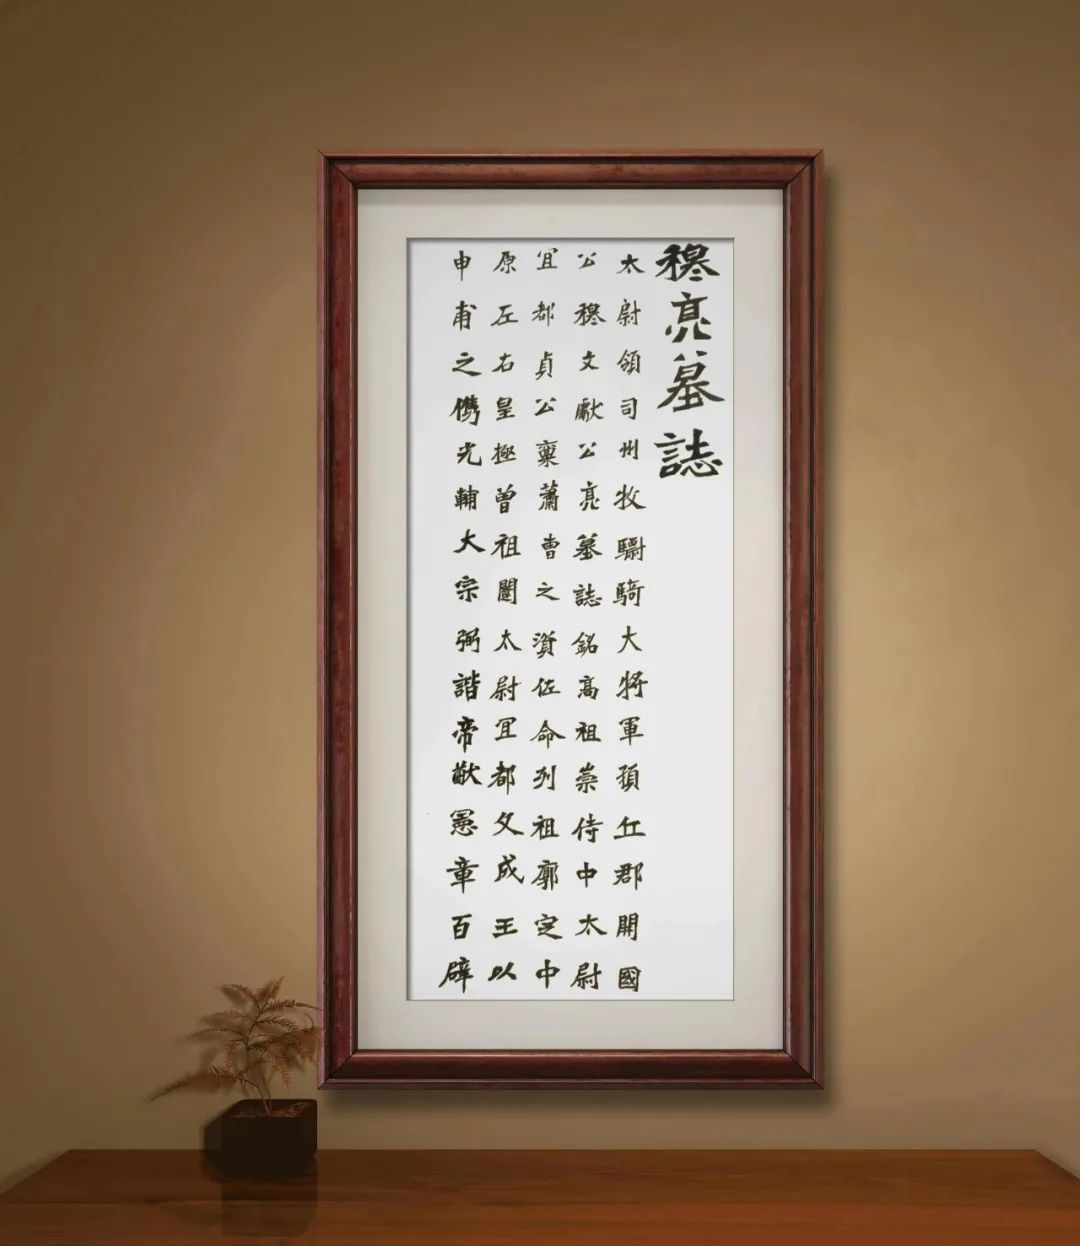 穆亮墓誌
太尉領司州牧驃騎大將軍頓丘郡開國
公穆文獻公亮墓誌銘高祖崇侍中太尉
宜都貞公稟蕭曹之資佐命列祖廓定中
原左右皇極曾祖闥太尉宜都文成王以
申甫之儁光輔大宗弼諧帝猷憲章百辟